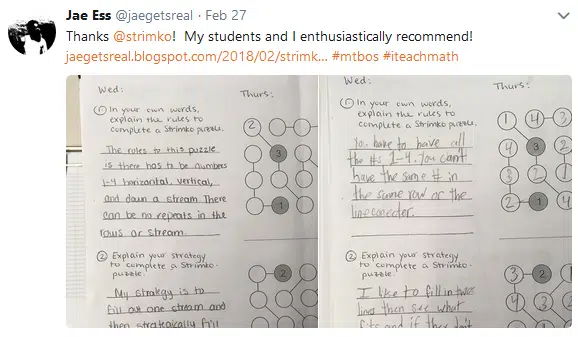 Jae Ess @jaegetsreal · Feb 27
Thanks @strimko! My students and I enthusiastically recommend!
jaegetsreal.blogspot.com/2018/02/strimk... #mtbos #iteachmath
Wed:
Thurs:
① In your own words,
explain the rules to
complete a Strimko puzzle.
The rules to this puzzle
is there has to be numbers
1-4 horizontal, vertical,
and down a stream. There
can be no repeats in the
rows or stream.
2
3
1
② Explain your strategy
to complete a Strimko
puzzle.
My strategy is to
fill out one stream and
then strategically fill
2
Wed:
Thurs:
① In your own words,
explain the rules to
complete a Strimko puzzle.
You have to have all
the #s 1-4. You cant
have the same # in
the same row or the
line conecter.
1 4 3
4 3 2
3 2 1
2 1 4
② Explain your strategy
to complete a Strimko
puzzle.
I like to fill in two
lines then see what
fits and if they don't
3 2
4 3